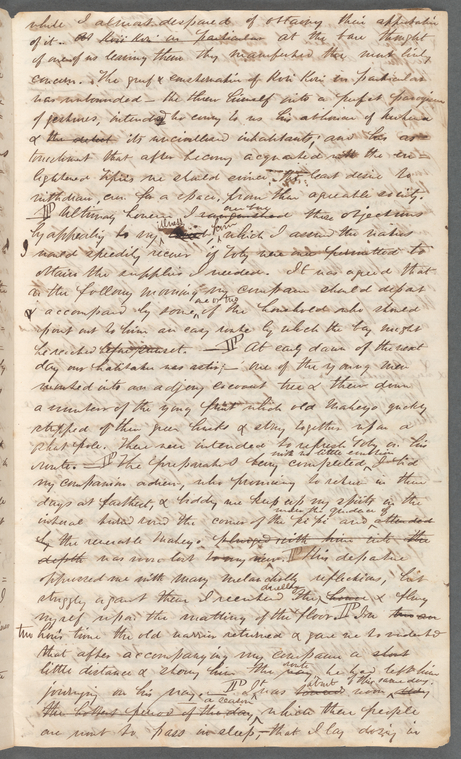 while I almost despaired of obtaining their approbation
of it. At Kori Kori in particular at the bare thought
of one of us leaving them they manifested the most lively
concern. The grief & consternation of Kori Kori in particular
was unbounded — he threw himself into a perfect paroxysm
of gestures, intended to convey to us his abhorrence of Nukuheva
& its uncivilized inhabitants, and his as-
tonishment that after becoming acquainted with the en-
lightened Typees we should evince the least desire to
withdraw, even for a space, from their agreeable society.
Although however I overbore these objections
by appealing to my illness from which I assured the natives
I would speedily recover if Toby were permitted to
obtain the supplies I needed. It was agreed that
on the following morning my companion should depart
& accompanied by some one or two of the household who should
point out to him an easy route by which the bay might
be reached before sunset. At early dawn of the next
day our habitation was astir, — one of the young men
mounted into an adjoining cocoanut tree & threw down
a number of the young fruit which old Maheyo quickly
stripped of their green husks & strung together upon a
short pole. These were intended to refresh Toby on his
route. The preparations being completed, with no little emotion I bid
my companion adieu, who promising to return in three
days at farthest, & bidding me keep up my spirits in the
interval turned round the corner of the pi pi and under the guidance of
the venerable Maheyo
was soon lost to my view. His departure
oppressed me with many melancholy reflections, but
struggling against them I reentered the dwelling & flung
myself upon the matting of the floor. In
two hours time the old warrior returned & gave me to understand
that after accompanying my companion a short
little distance & showing him the route he had left him
journeying on his way. It was about noon of this same day,
the hottest period of the day, a season which these people
are wont to pass in sleep, that I lay dozing in